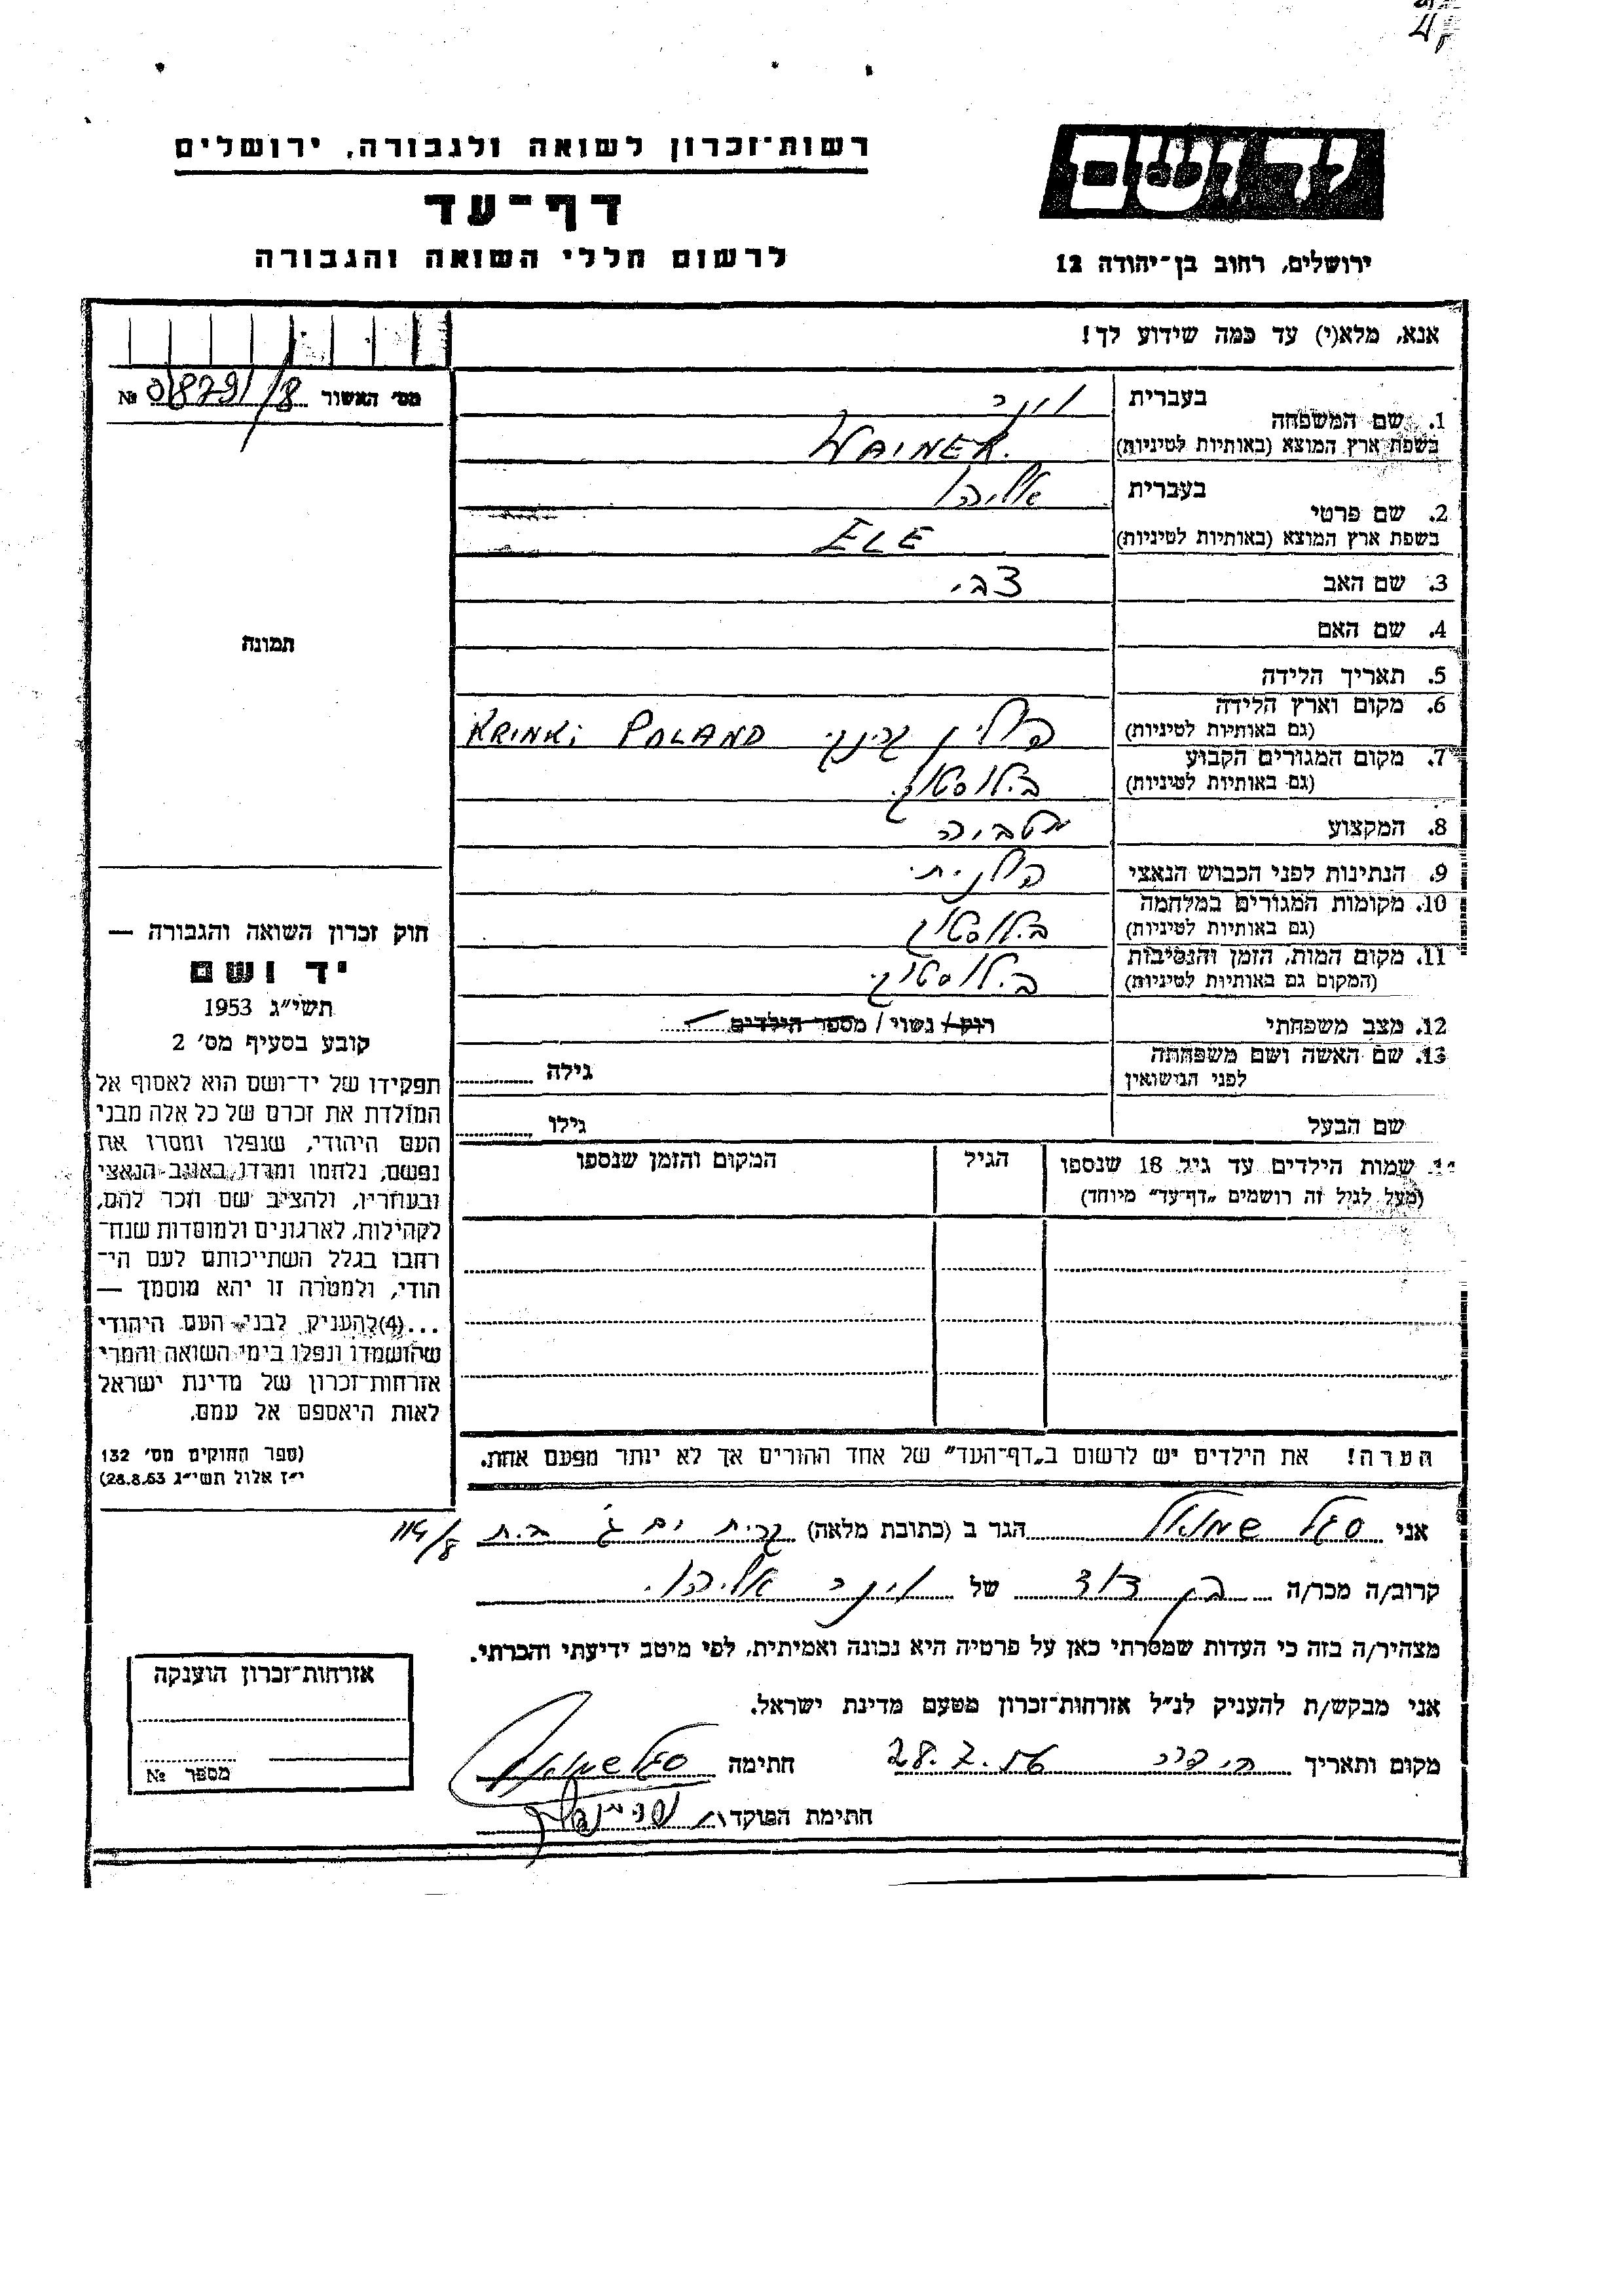 יד ושם
רשות־זכרון לשואה ולגבורה, ירושלים
דף־עד
לרשום חללי השואה והגבורה
ירושלים, רחוב בן־יהודה 12
אנא, מלא(י) עד כמה שידוע לך!
מס׳ האשור № 
1. שם המשפחה
בעברית וינר
בשפת ארץ המוצא (באותיות לטיניות) WAINER.
2. שם פרטי
בעברית אליהו
בשפת ארץ המוצא (באותיות לטיניות) ELE
3. שם האב צבי
4. שם האם
תמונה
5. תאריך הלידה
6. מקום וארץ הלידה
(גם באותיות לטיניות) פולין קרינקי KRINKi POLAND
7. מקום המגורים הקבוע
(גם באותיות לטיניות) ביאלוסטוק
8. המקצוע
9. הנתינות לפני הכבוש הנאצי פולנית
10. מקומות המגורים במלחמה
(גם באותיות לטיניות) ביאלוסטוק
11. מקום המות, הזמן והנסיבות
(המקום גם באותיות לטיניות) ביאלוסטוק
12. מצב משפחתי רוק/ נשוי/ מספר הילדים
13. שם האשה ושם משפחתה
לפני הנישואין
גילה
שם הבעל
גילו
14. שמות הילדים עד גיל 18 שנספו
(מעל לגיל זה רושמים „דף־עד" מיוחד)
הגיל
המקום והזמן שנספו
חוק זכרון השואה והגבורה —
יד ושם
תשי״ג 1953
קובע בסעיף מס׳ 2
תפקידו של יד־ושם הוא לאסוף אל
המולדת את זכרם של כל אלה מבני
העם היהודי, שנפלו ומסרו את
נפשם, נלחמו ומרדו באויב הנאצי
ובעוזריו, ולהציב שם וזכר להם,
לקהילות, לארגונים ולמוסדות שנח־
רבו בגלל השתייכותם לעם הי־
הודי, ולמטרה זו יהא מוסמך —
...(4)להעניק לבני העם היהודי
שהושמדו ונפלו בימי השואה והמרי
אזרחות־זכרון של מדינת ישראל
לאות היאספם אל עמם.
(ספר החוקים מס׳ 132
י״ז אלול תשי״ג 28.8.53)
הערה! את הילדים יש לרשום ב„דף־העד" של אחד ההורים אך לא יותר מפעם אחת.
אני סגל שמואל הגר ב (כתובת מלאה) קרית ים ג׳ בית 114/8
קרוב/ה מכר/ה בן דוד של וינר אליהו.
מצהיר/ה בזה כי העדות שמסרתי כאן על פרטיה היא נכונה ואמיתית, לפי מיטב ידיעתי והכרתי.
אני מבקש/ת להעניק לנ״ל אזרחות־זכרון מטעם מדינת ישראל.
מקום ותאריך חיפה 28.7.56 חתימה סגל שמואל
חתימת הפוקד
אזרחות־זכרון הוענקה
מספר №